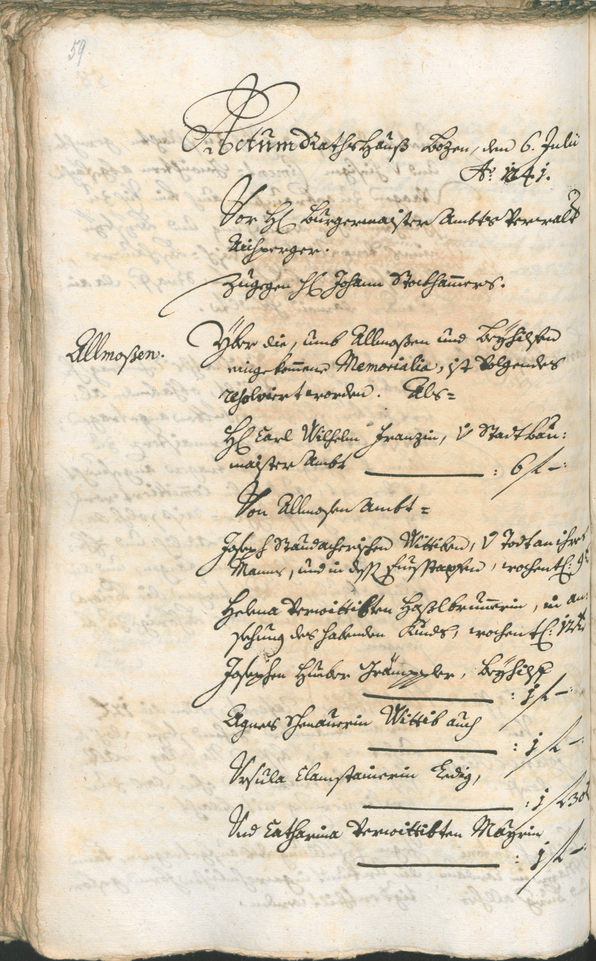 59.
Actum Rathshauß Bozen, den 6. Julii
Ao: 1741.
Vor H: Burgermaister Ambts Verwalt
Aichperger.
Zugegen H: Johann Stockhamers.
Allmoßen.
Yber die, umb Allmoßen und Beyhilfen
eingekomene Memorialia, ist volgendes
resolviert worden. Als=
H: Carl Wilhelm Franzin, v Stadt bau:
maister Ambt : 6 f –
Von Allmosen Ambt =
Joseph Staudacherischen Wittiben, v Todt an ihres
Manns, und in dess fuesstapfen, wochentl:
Helena verwittibten Hoslbrunerin, in an:
sehung des habenden Kinds, wochentl: 12
Josephen Hueber, Beyhilf
: 1 f –
Agnes Schenauerin Wittib auch
: 1 f –
Ursula Clamstainerin Ledig,
: 1 f 30
Und Catharina verwittibten Mayrin
: 1 f –